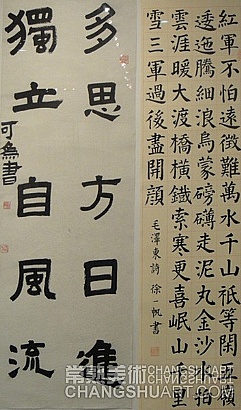 紅軍不怕遠徵難萬水千山祇等閑五嶺
逶迤騰細浪烏蒙磅礴走泥丸金沙水拍
雲涯暖大渡橋橫鐵索寒更喜岷山千里
雪三軍過後盡開顏
毛澤東詩 徐一帆書
多思方日進
獨立自風流
可書
常熟美術
CHANGSHUART